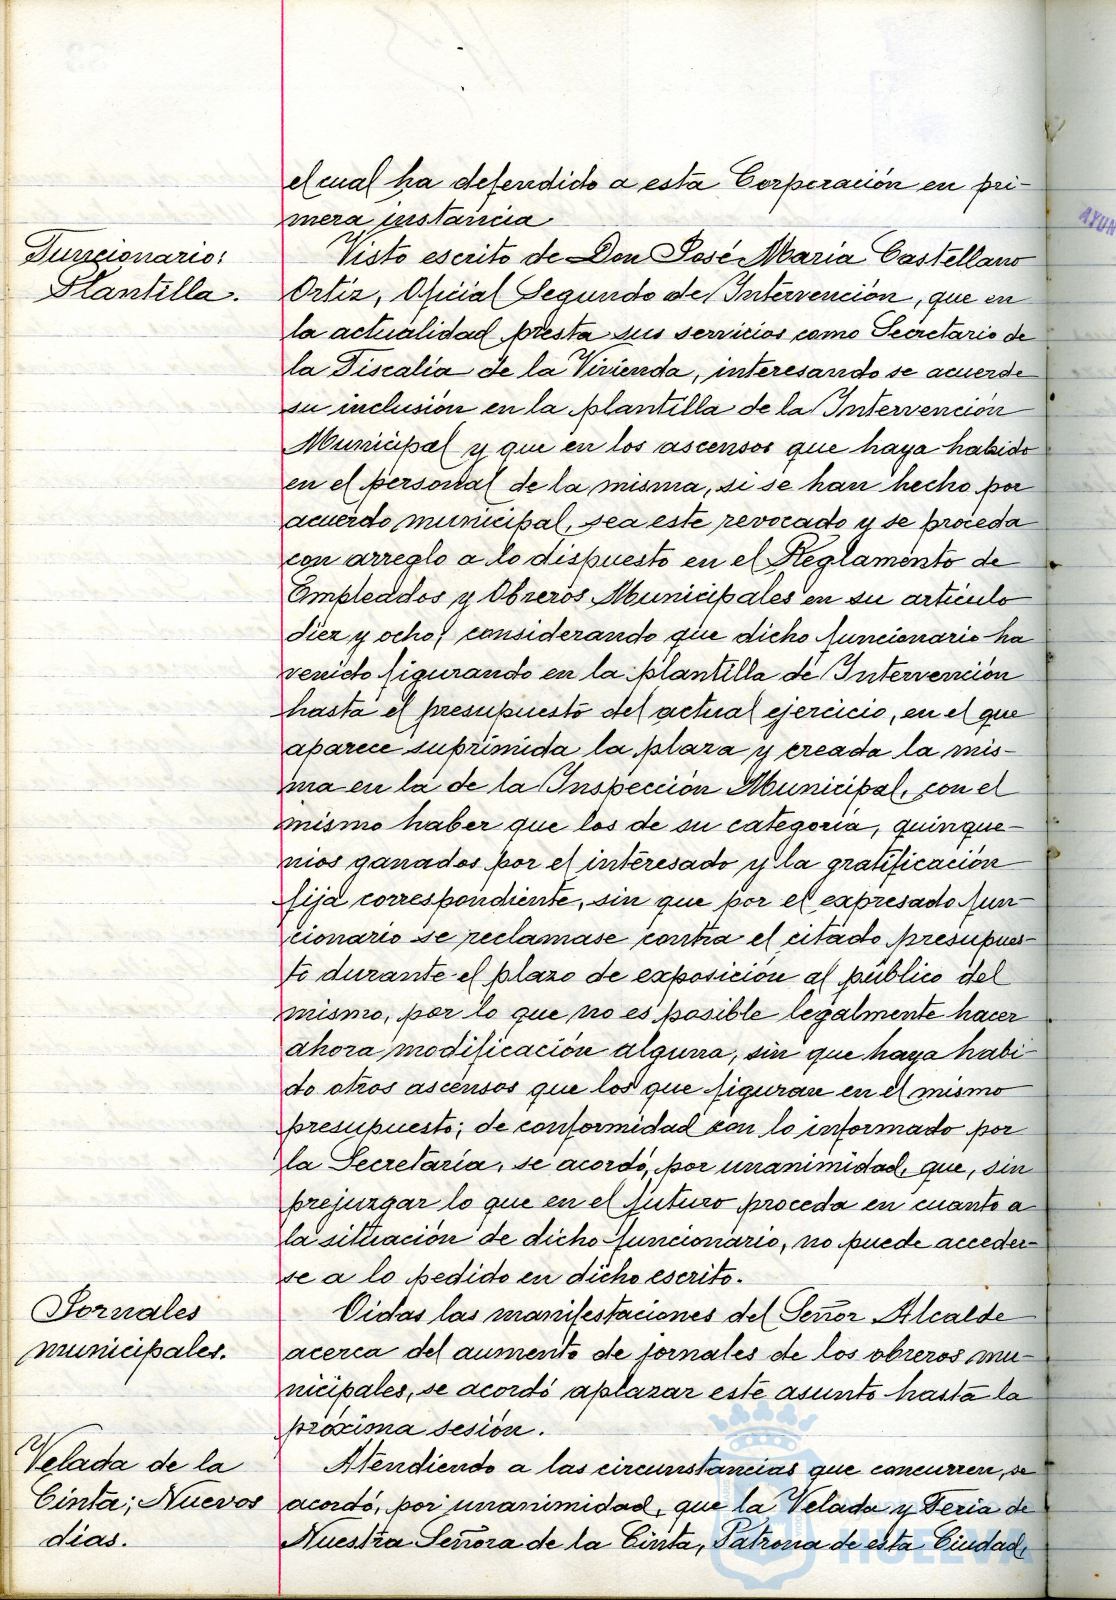 el cual ha defendido a esta Corporación en pri-
mera instancia
Funcionario:
Plantilla.
Visto escrito de Don José María Castellano
Ortiz, Oficial Segundo de Intervención, que en
la actualidad presta sus servicios como Secretario de
la Fiscalía de la Vivienda, interesando se acuerde
su inclusión en la plantilla de la Intervención
Municipal y que en los ascensos que haya habido
en el personal de la misma, si se han hecho por
acuerdo municipal, sea este revocado y se proceda
con arreglo a lo dispuesto en el Reglamento de
Empleados y Obreros Municipales en su artículo
diez y ocho; considerando que dicho funcionario ha
venido figurando en la plantilla de Intervención
hasta el presupuesto del actual ejercicio, en el que
aparece suprimida la plaza y creada la mis-
ma en la de la Inspección Municipal, con el
mismo haber que los de su categoría, quinque-
nios ganados por el interesado y la gratificación
fija correspondiente, sin que por el expresado fun-
cionario se reclamase contra el citado presupues-
to durante el plazo de exposición al público del
mismo, por lo que no es posible legalmente hacer
ahora modificación alguna, sin que haya habi-
do otros ascensos que los que figuran en el mismo
presupuesto; de conformidad con lo informado por
la Secretaría, se acordó, por unanimidad, que, sin
prejuzgar lo que en el futuro proceda en cuanto a
la situación de dicho funcionario, no puede acceder-
se a lo pedido en dicho escrito.
Jornales
municipales.
Oidas las manifestaciones del Señor Alcalde
acerca del aumento de jornales de los obreros mu-
nicipales, se acordó aplazar este asunto hasta la
próxima sesión.
Velada de la
Cinta; Nuevos
dias.
Atendiendo a las circunstancias que concurren, se
acordó, por unanimidad, que la Velada y Feria de
Nuestra Señora de la Cinta, Patrona de esta Ciudad,
HUELVA
AYUN